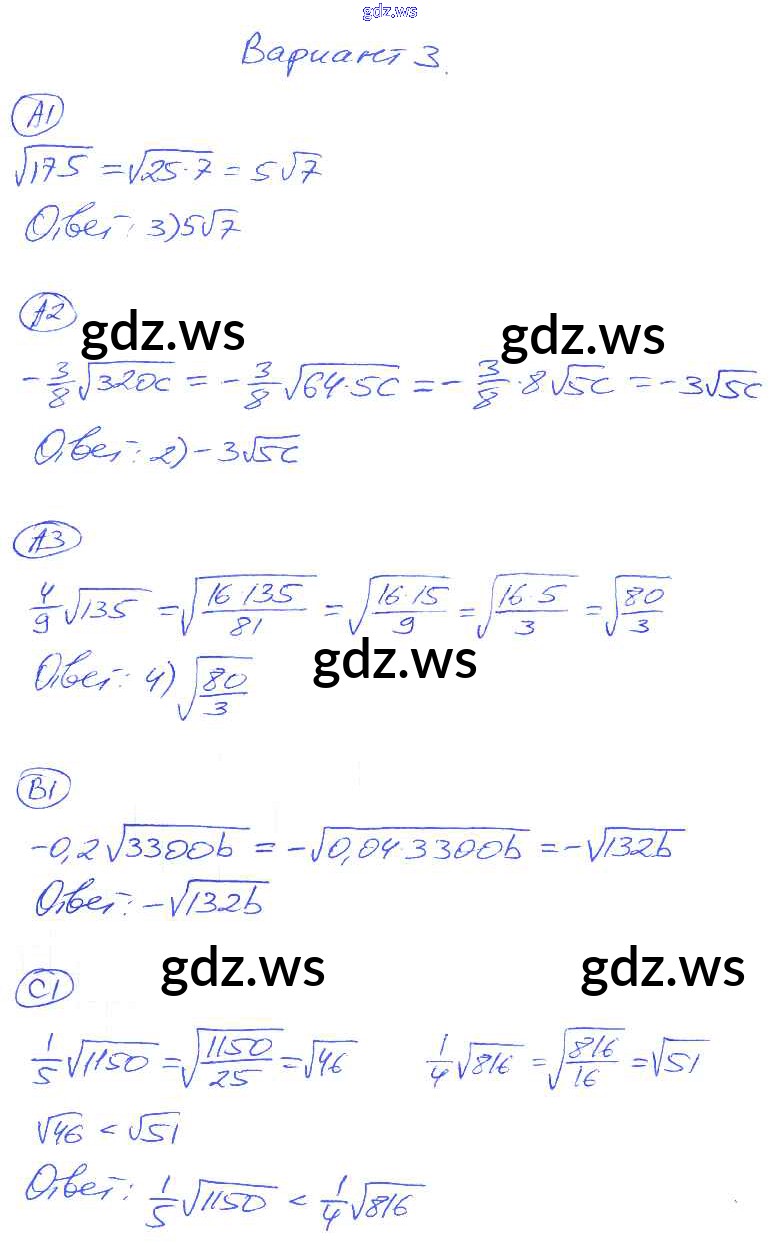 gdz.ws
Вариант 3.
А1
√175 = √25·7 = 5√7
Ответ: 3) 5√7
А2
gdz.ws gdz.ws
-3/8 √320c = -3/8 √64·5c = -3/8 · 8√5c = -3√5c
Ответ: 2) -3√5c
А3
4/9 √135 = √(16·135/81) = √(16·15/9) = √(16·5/3) = √(80/3)
gdz.ws
Ответ: 4) √(80/3)
В1
-0,2√3300b = -√0,04·3300b = -√132b
Ответ: -√132b
gdz.ws gdz.ws
С1
1/5 √1150 = √(1150/25) = √46 1/4 √816 = √(816/16) = √51
√46 < √51
Ответ: 1/5 √1150 < 1/4 √816